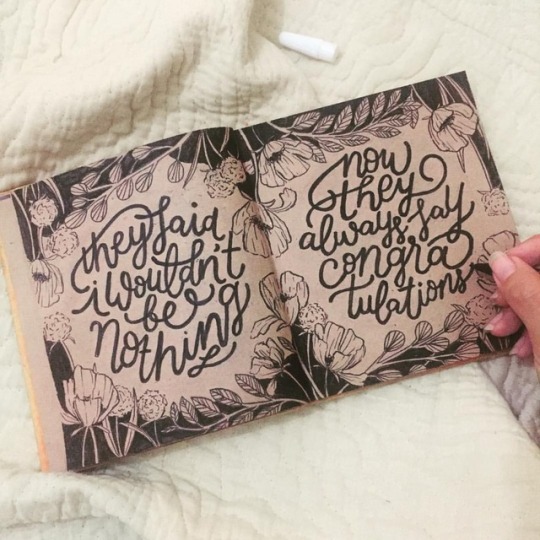 they said
i wouldn't
be
nothing
now
they
always say
congra
tulations